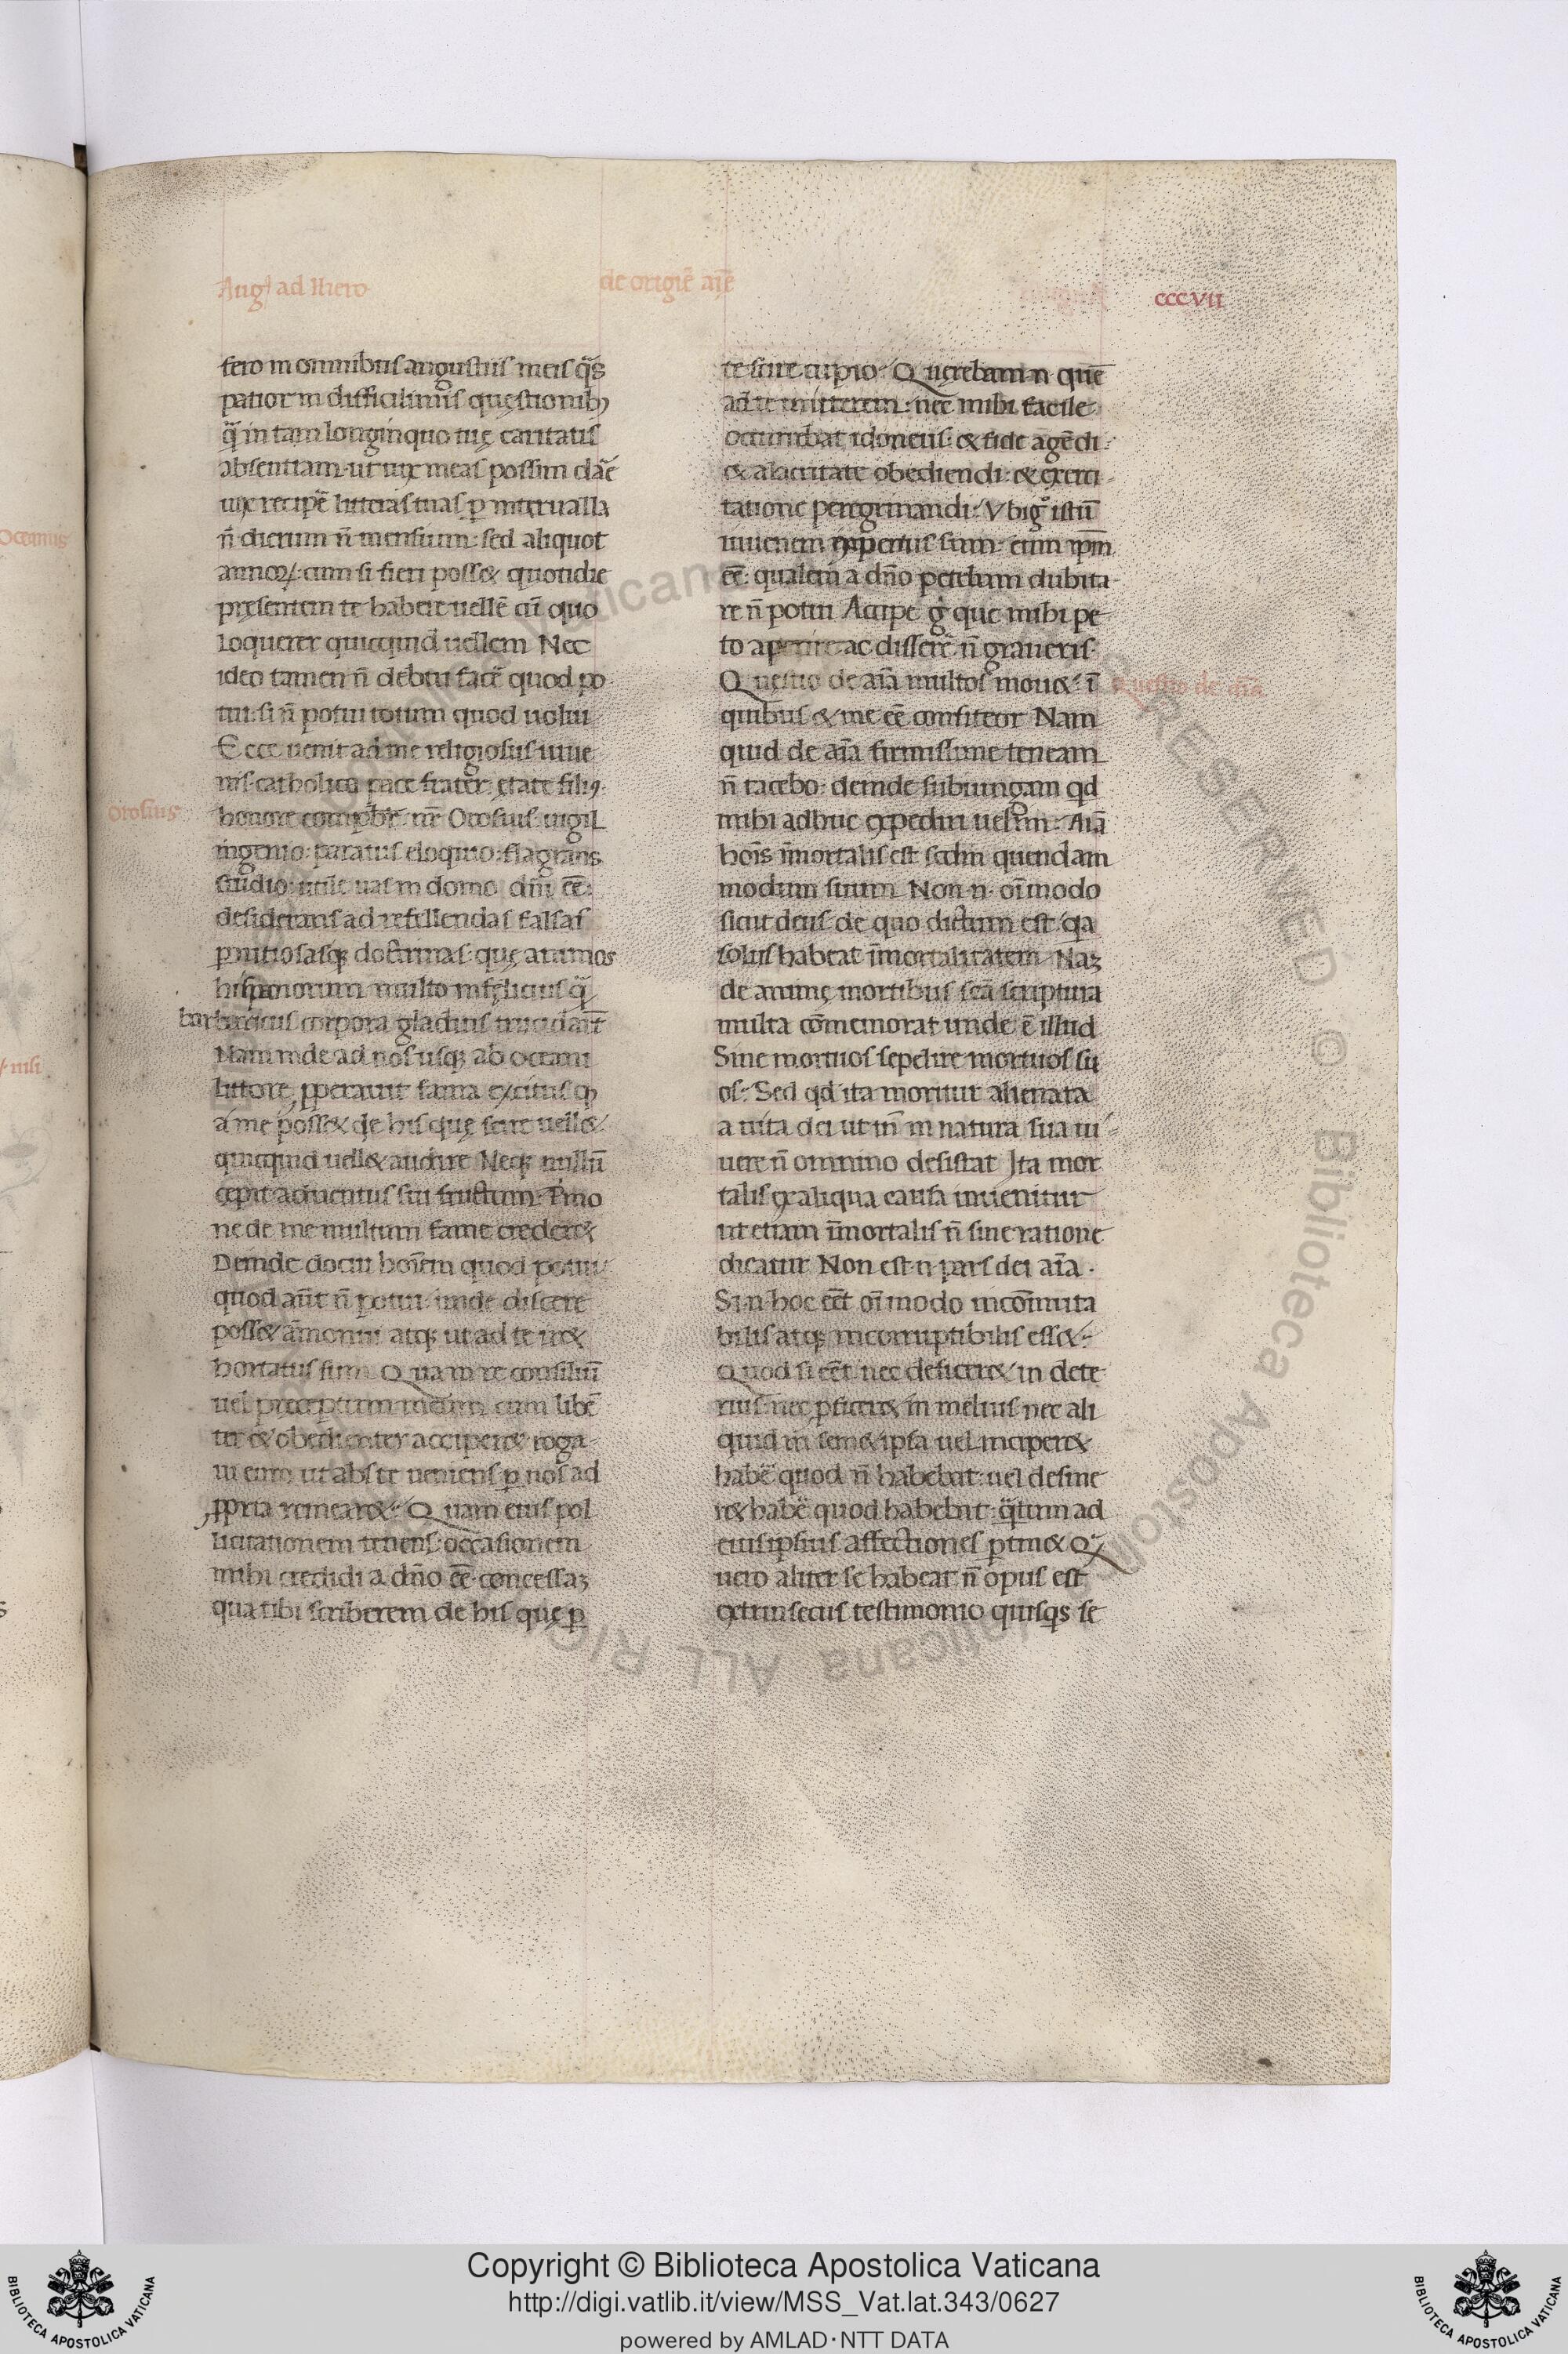 Augꝰ ad Hiero
de origiē aīe
cccvii
fero in omnibus angustiis meis q̄s
patior in difficilimis quęstionibꝫ
q̄ in tam longinquo tuę caritatis
absentiam ut uix meas possim daē
uix recipē litteras tuas ꝑ interualla
n̄ dierum n̄ mensium sed aliquot
annoꝝ cum si fieri poss& quotidie
pręsentem te habere uellē cū quo
loquerer quicquid uellem Nec
ideo tamen n̄ debui facē quod po
tui si n̄ potui totum quod uolui
Ecce uenit ad me religiosus iuue
nis catholica pace frater ętate filiꝰ
honore compbr̄ nr̄ Orosius uigil
ingenio paratus eloquio flagrans
studio utile uas in domo dn̄i eē
desiderans ad refellendas falsas
ꝑnitiosasqꝫ doctrinas quę animos
hispanorum multo infęlicius q̄
barbaricus corpora gladius trucidar̄t
Nam inde ad nos usqꝫ ab oceani
littore ꝓperauit fama excitus qꝫ
a me poss& de his quę scire uell&
quicquid uell& audire Neqꝫ nullū
cępit aduentus sui fructum Pͥmo
ne de me multum fame creder&
Deinde docui hoīem quod potui
quod aūt n̄ potui unde discere
poss& āmonui atqꝫ ut ad te ir&
hortatus sum Qua in re consiliū
uel preceptum meum cum libē
ter & obedienter acciper& roga
ui eum ut abs te ueniens ꝑ nos ad
ꝓpria remear& Quam eius pol
licitationem tenens occasionem
mihi credidi a dn̄o eē concessaꝫ
qua tibi scriberem de his quę ꝑ
te scire cupio Quęrebam n quē
ad te mitterem nec mihi facile
occurrebat idoneus & fide agēdi
& alacritate obediendi & exerci
tatione peregrinandi Vbi gͥ istū
iuuenem expertus sum eum ipm̄
eē qualem a dn̄o petebam dubita
re n̄ potui Accipe gͥ que mihi pe
to aperire ac disserē n̄ graueris
Questio de aīa multos mou& ī
quibus & me eē confiteor Nam
quid de aīa firmissime teneam
n̄ tacebo deinde subiungam qd
mihi adhuc expediri uelim Aīa
hoīs īmortalis est scdm quendam
modum suum Non n oī modo
sicut deus de quo dictum est qa
solus habeat īmortalitatem Naꝫ
de animę mortibus scā scriptura
multa cōmemorat unde ē illud
Sine mortuos sepelire mortuos su
os Sed qd ita moritur alienata
a uita dei ut tn̄ in natura sua ui
uere n̄ omnino desistat Ita mor
talis ex aliqua causa inuenitur
ut etiam īmortalis n̄ sine ratione
dicatur Non est n pars dei aīa
Si n hoc eēt oī modo incōmuta
bilis atqꝫ incorruptibilis ess&
Quod si eēt nec deficer& in dete
rius nec ꝓficer& in melius nec ali
quid in sem&ipsa uel inciper&
habē quod n̄ habebat uel desine
r& habē quod habebat q̄tum ad
eius ipsius affectiones ꝑtin& Qͣ
uero aliter se habeat n̄ opus est
extrinsecus testimonio quisqs se
Orosius
Questio de aīa
Oceanus
nili
Copyright © Biblioteca Apostolica Vaticana
http://digi.vatlib.it/view/MSS_Vat.lat.343/0627
powered by AMLAD·NTT DATA
BIBLIOTECA APOSTOLICA VATICANA
BIBLIOTECA APOSTOLICA VATICANA